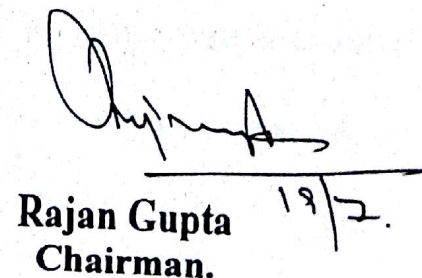 19/2.
Rajan Gupta
Chairman.